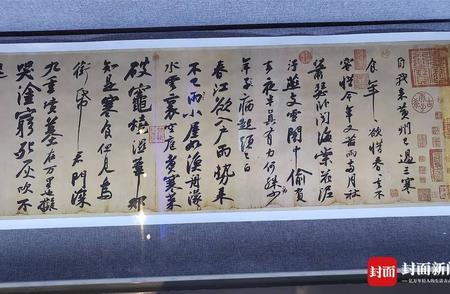 自我來黃州已過三寒
食年〃欲惜春春去不
容惜今年又苦雨兩月秋
蕭瑟卧聞海棠花泥
汙燕支雪闇中偷負
去夜半真有力何殊少
年子病起頭已白
春江欲入戶雨勢來
不已雨小屋如漁舟濛〃
水雲裏空庖煮寒菜
破竈燒濕葦那
知是寒食但見烏
銜帋君門深
九重墳墓在万里也擬
哭塗窮死灰吹不
起
封面
封面新闻